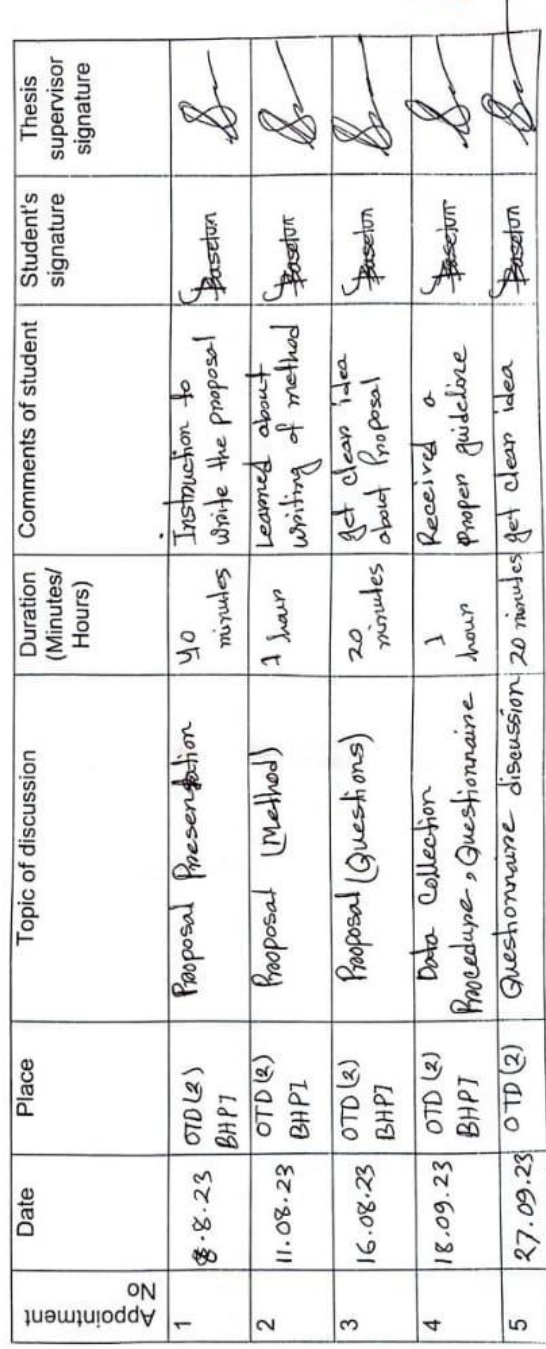 Appointment
No
Date
Place
Topic of discussion
Duration
(Minutes/
Hours)
Comments of student
Student's
signature
Thesis
supervisor
signature
1
8.8.23
OTD (2)
BHPI
Proposal Presentation
40
minutes
Instruction to
write the proposal
2
11.08.23
OTD (2)
BHPI
Proposal (Method)
1 hour
Learned about
writing of method
3
16.08.23
OTD (2)
BHPI
Proposal (Questions)
20
minutes
get clear idea
about Proposal
4
18.09.23
OTD (2)
BHPI
Data Collection
Procedure, Questionnaire
1
hour
Received a
proper guideline
5
27.09.23
OTD (2)
Questionnaire discussion
20 minutes
get clear idea